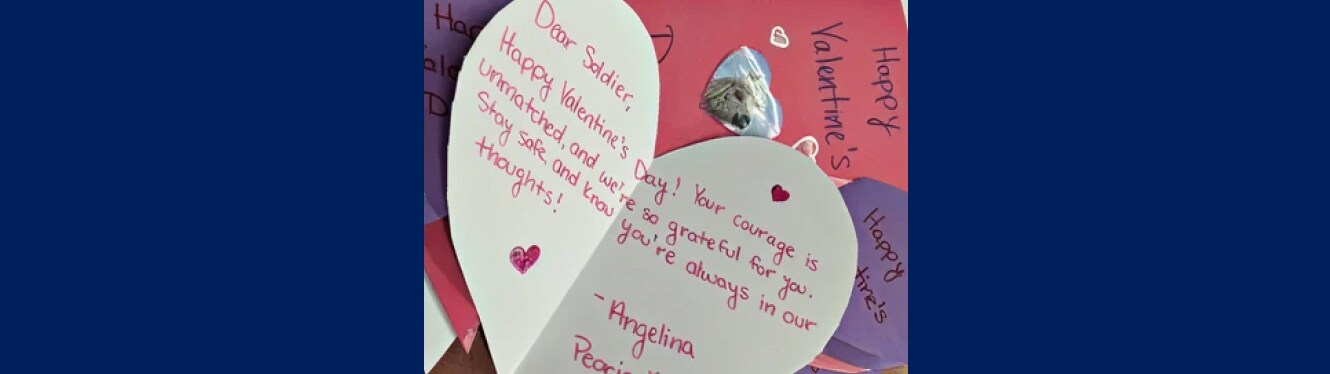 Dear Soldier,
Happy Valentine's Day! Your courage is
unmatched, and we're so grateful for you.
Stay safe and know you're always in our
thoughts!
-Angelina
Happy
Valentine's
D
Happy
tine's
Ha
D